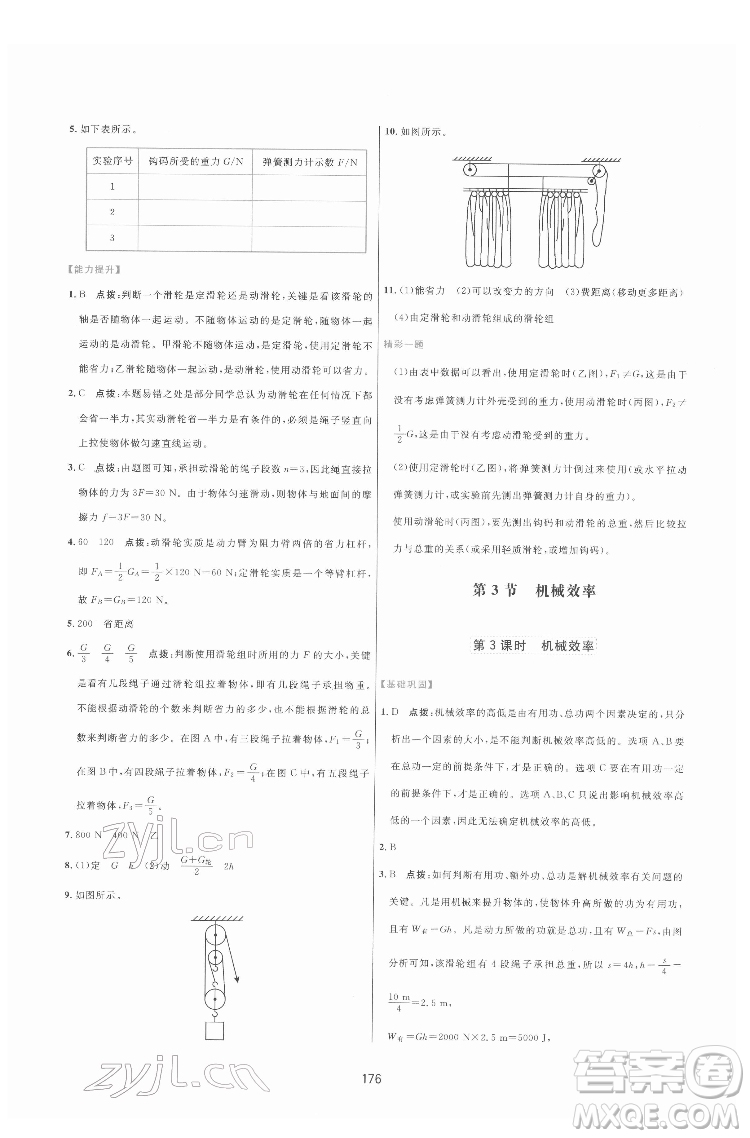 5. 如下表所示。
实验序号 钩码所受的重力 G/N 弹簧测力计示数 F/N
1
2
3
【能力提升】
1. B 点拨:判断一个滑轮是定滑轮还是动滑轮,关键是看该滑轮的
轴是否随物体一起运动。不随物体一起运动的是定滑轮,随物体一起
运动的是动滑轮。甲滑轮随物体一起运动,是动滑轮,使用动滑轮
能省力;乙滑轮随物体一起运动,是动滑轮,使用动滑轮可以省力。
2. C 点拨:本题易错之处是部分同学总认为动滑轮在任何情况下都
会省一半力,其实动滑轮省一半力是有条件的,就是绳子竖直向
上拉使物体做匀速直线运动。
3. C 点拨:由题图可知,承担动滑轮的绳子段数 n=3,因此绳直接拉
物体的力为 3F=30 N。由于物体匀速滑动,则物体与地面间的摩
擦力 f=3F=30 N。
4. 60 120 点拨:动滑轮实质是动力臂为阻力臂两倍的省力杠杆,
即 F_A=1/2 G_A=1/2×120 N=60 N;定滑轮实质是一个等臂杠杆,
故 F_B=G_B=120 N。
5. 200 省距离
6. G/3 G/4 G/5 点拨:判断使用滑轮组时所用的力 F 的大小,关键
是看有几段绳子通过滑轮组拉着物体,即是由几段绳子承担物重,
而不能从动滑轮的个数来判断省力的多少,也不能从滑轮的总个
数来判断省力的多少。在图 A 中,有三段绳子拉着物体,F₁=G/3;
在图 B 中,有四段绳子拉着物体,F₂=G/4;在图 C 中,有五段绳子
拉着物体,F₃=G/5。
7. 800 N 400 N 乙
8. (1)定 G E (2)动 (G+G轮)/2 2h
9. 如图所示。
10. 如图所示。
11. (1)能省力 (2)可以改变力的方向 (3)费距离(移动更多距离)
(4)由定滑轮和动滑轮组成的滑轮组
精彩一题
(1)由表中数据可以看出,使用定滑轮时(乙图),F₁≠G,可能是
没有考虑弹簧测力计外壳受到的重力,使用动滑轮时(丙图),F₂≠
1/2 G,可能是没有考虑动滑轮受到的重力。
(2)使用定滑轮时(乙图),将弹簧测力计倒过来使用(或水平拉动
弹簧测力计,或实验前先测出弹簧测力计的自重)。
使用动滑轮时(丙图),要先测出钩码和动滑轮的总重,然后比较拉
力与总重的关系(或采用轻质滑轮,或增加钩码)。
第 3 节 机械效率
第 3 课时 机械效率
【基础巩固】
1. D 点拨:机械效率的高低是由有用功、总功两个因素决定的,只分
析出一个因素的大小,是不能判断机械效率的高低的。选项 D 是
在总功一定的前提条件下,选项 A、B、C 只说出影响机械效率高
低的一个因素,因此,无法确定机械效率的高低。
2. B
3. B 点拨:如何判断有用功、额外功、总功是解机械效率有关问题的
关键。凡是用机械来提升物体的,使物体升高所做的功就是有用
功,且有 W有=Gh。凡是动力所做的功就是总功,且有 W总=Fs,由图
分析可知,该滑轮组有 4 段绳子承担总重,所以 s=4h,h=s/4=
10 m/4=2.5 m,
W有=Gh=2000 N×2.5 m=5000 J,
176
zyjl.cn
zyjl.cn
答案圈
MXQE.COM